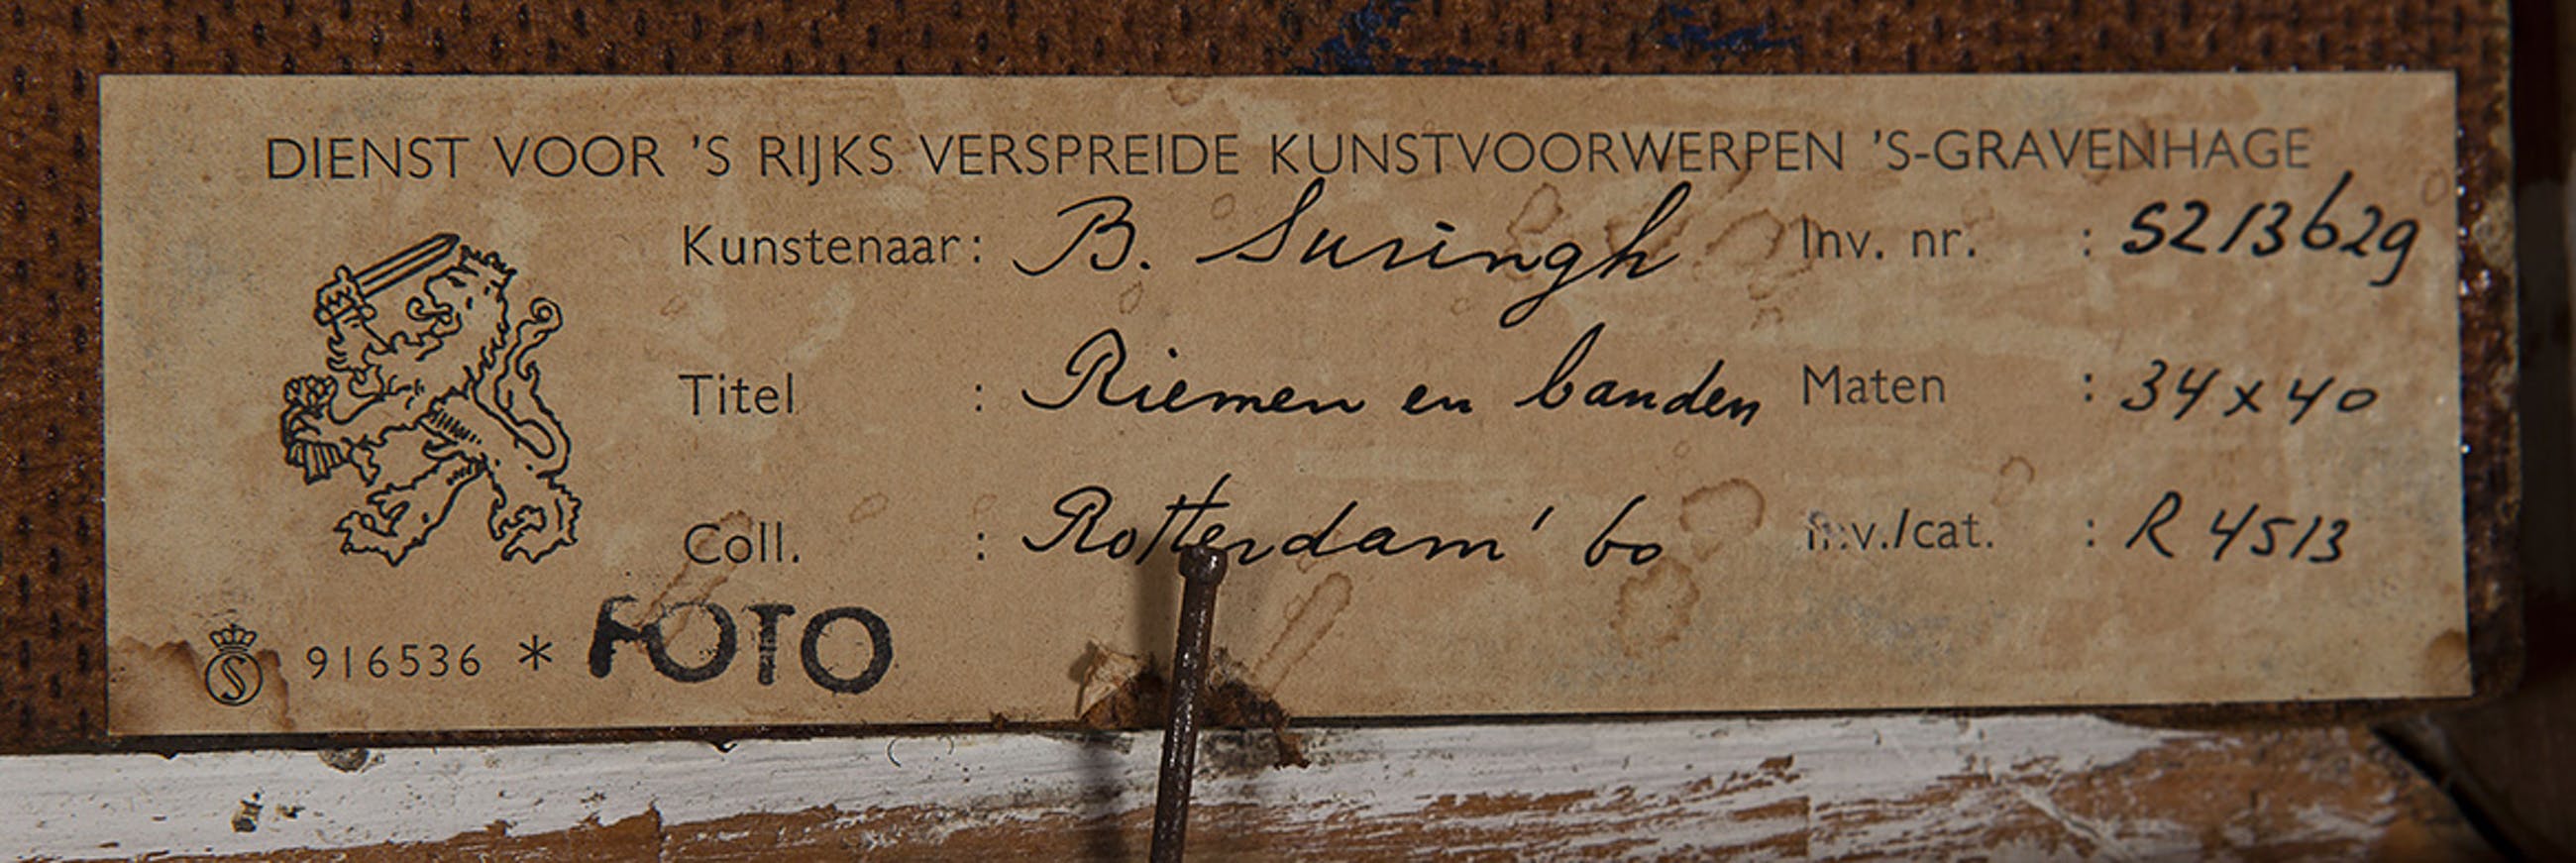 DIENST VOOR 'S RIJKS VERSPREIDE KUNSTVOORWERPEN 'S-GRAVENHAGE
Kunstenaar : B. Suringh Inv. nr. : S213629
Titel : Riemen en banden Maten : 34 x 40
Coll. : Rotterdam '60 Inv./cat. : R 4513
S 916536 * FOTO